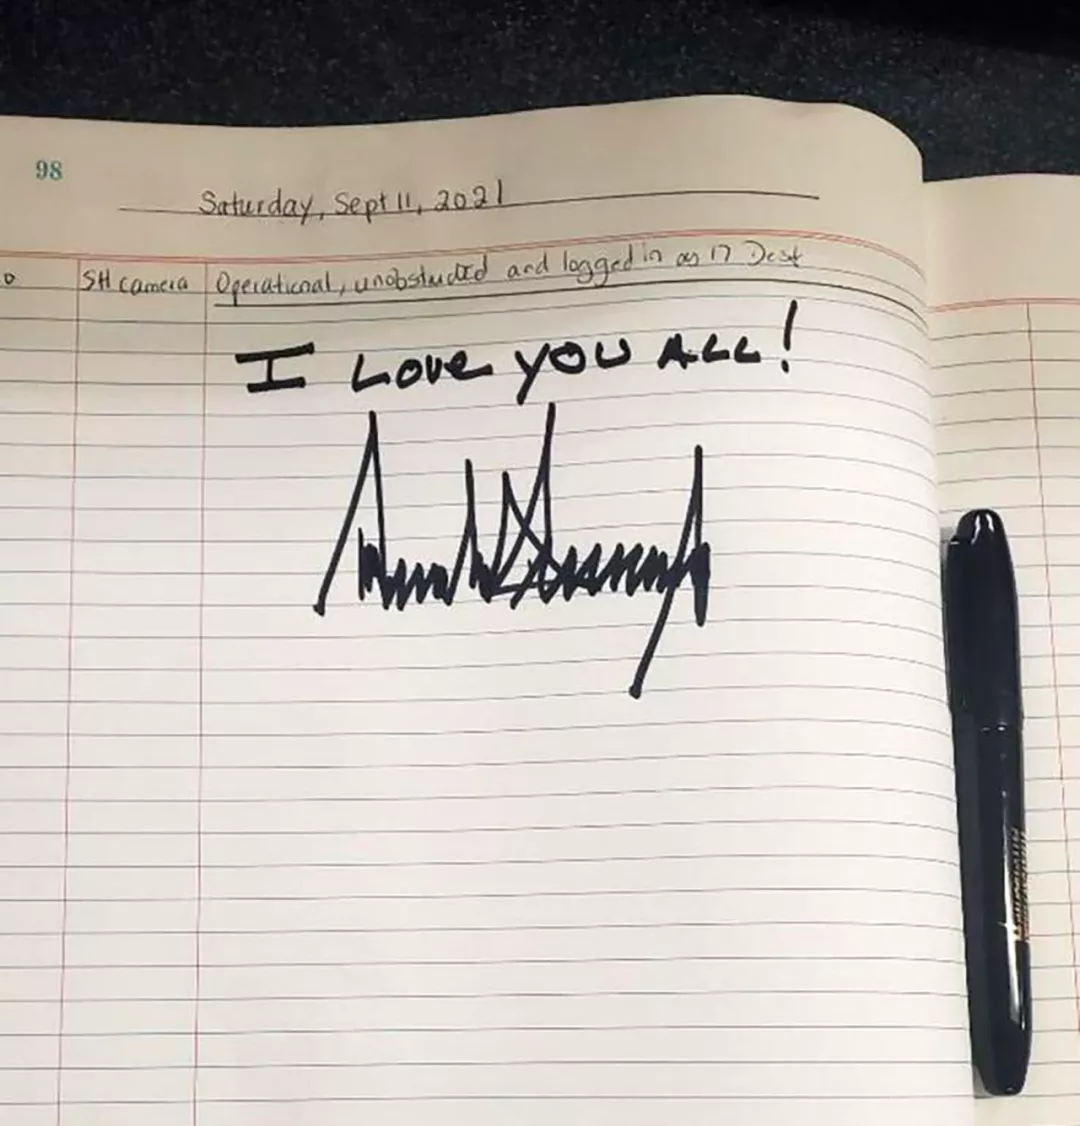 98
Saturday, Sept 11, 2021
SH camera Operational, unobstructed and logged in as 17 Desk
I LOVE YOU ALL!